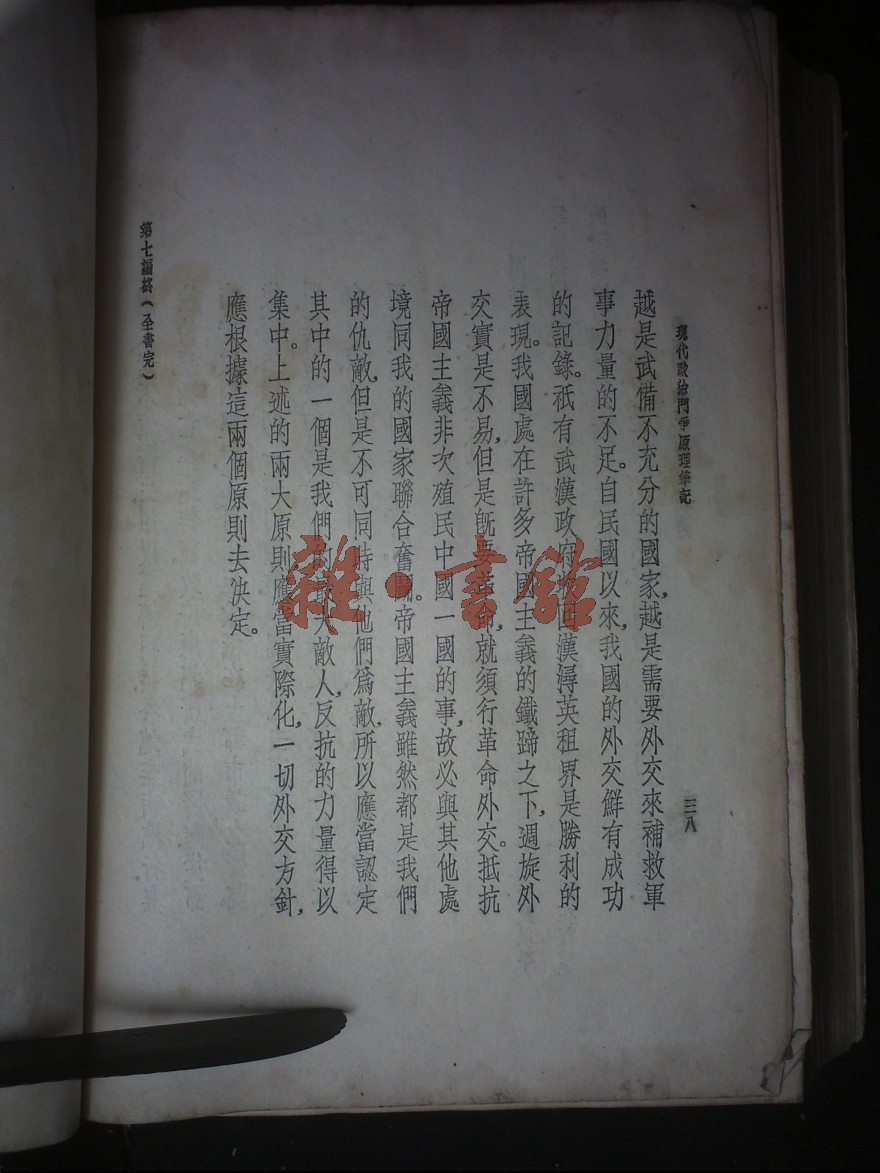 現代政治鬥爭原理筆記
三八
越是武備不充分的國家,越是需要外交來補救軍
事力量的不足。自民國以來,我國的外交鮮有成功
的記錄。祇有武漢政府收回漢潯英租界是勝利的
表現。我國處在許多帝國主義的鐵蹄之下,週旋外
交實是不易,但是既要革命,就須行革命外交。抵抗
帝國主義非次殖民中國一國的事,故必與其他處
境同我的國家聯合奮鬬。帝國主義雖然都是我們
的仇敵,但是不可同時與他們爲敵,所以應當認定
其中的一個是我們的最大敵人,反抗的力量得以
集中。上述的兩大原則應當實際化,一切外交方針,
應根據這兩個原則去決定。
第七講終(全書完)
雜·書館